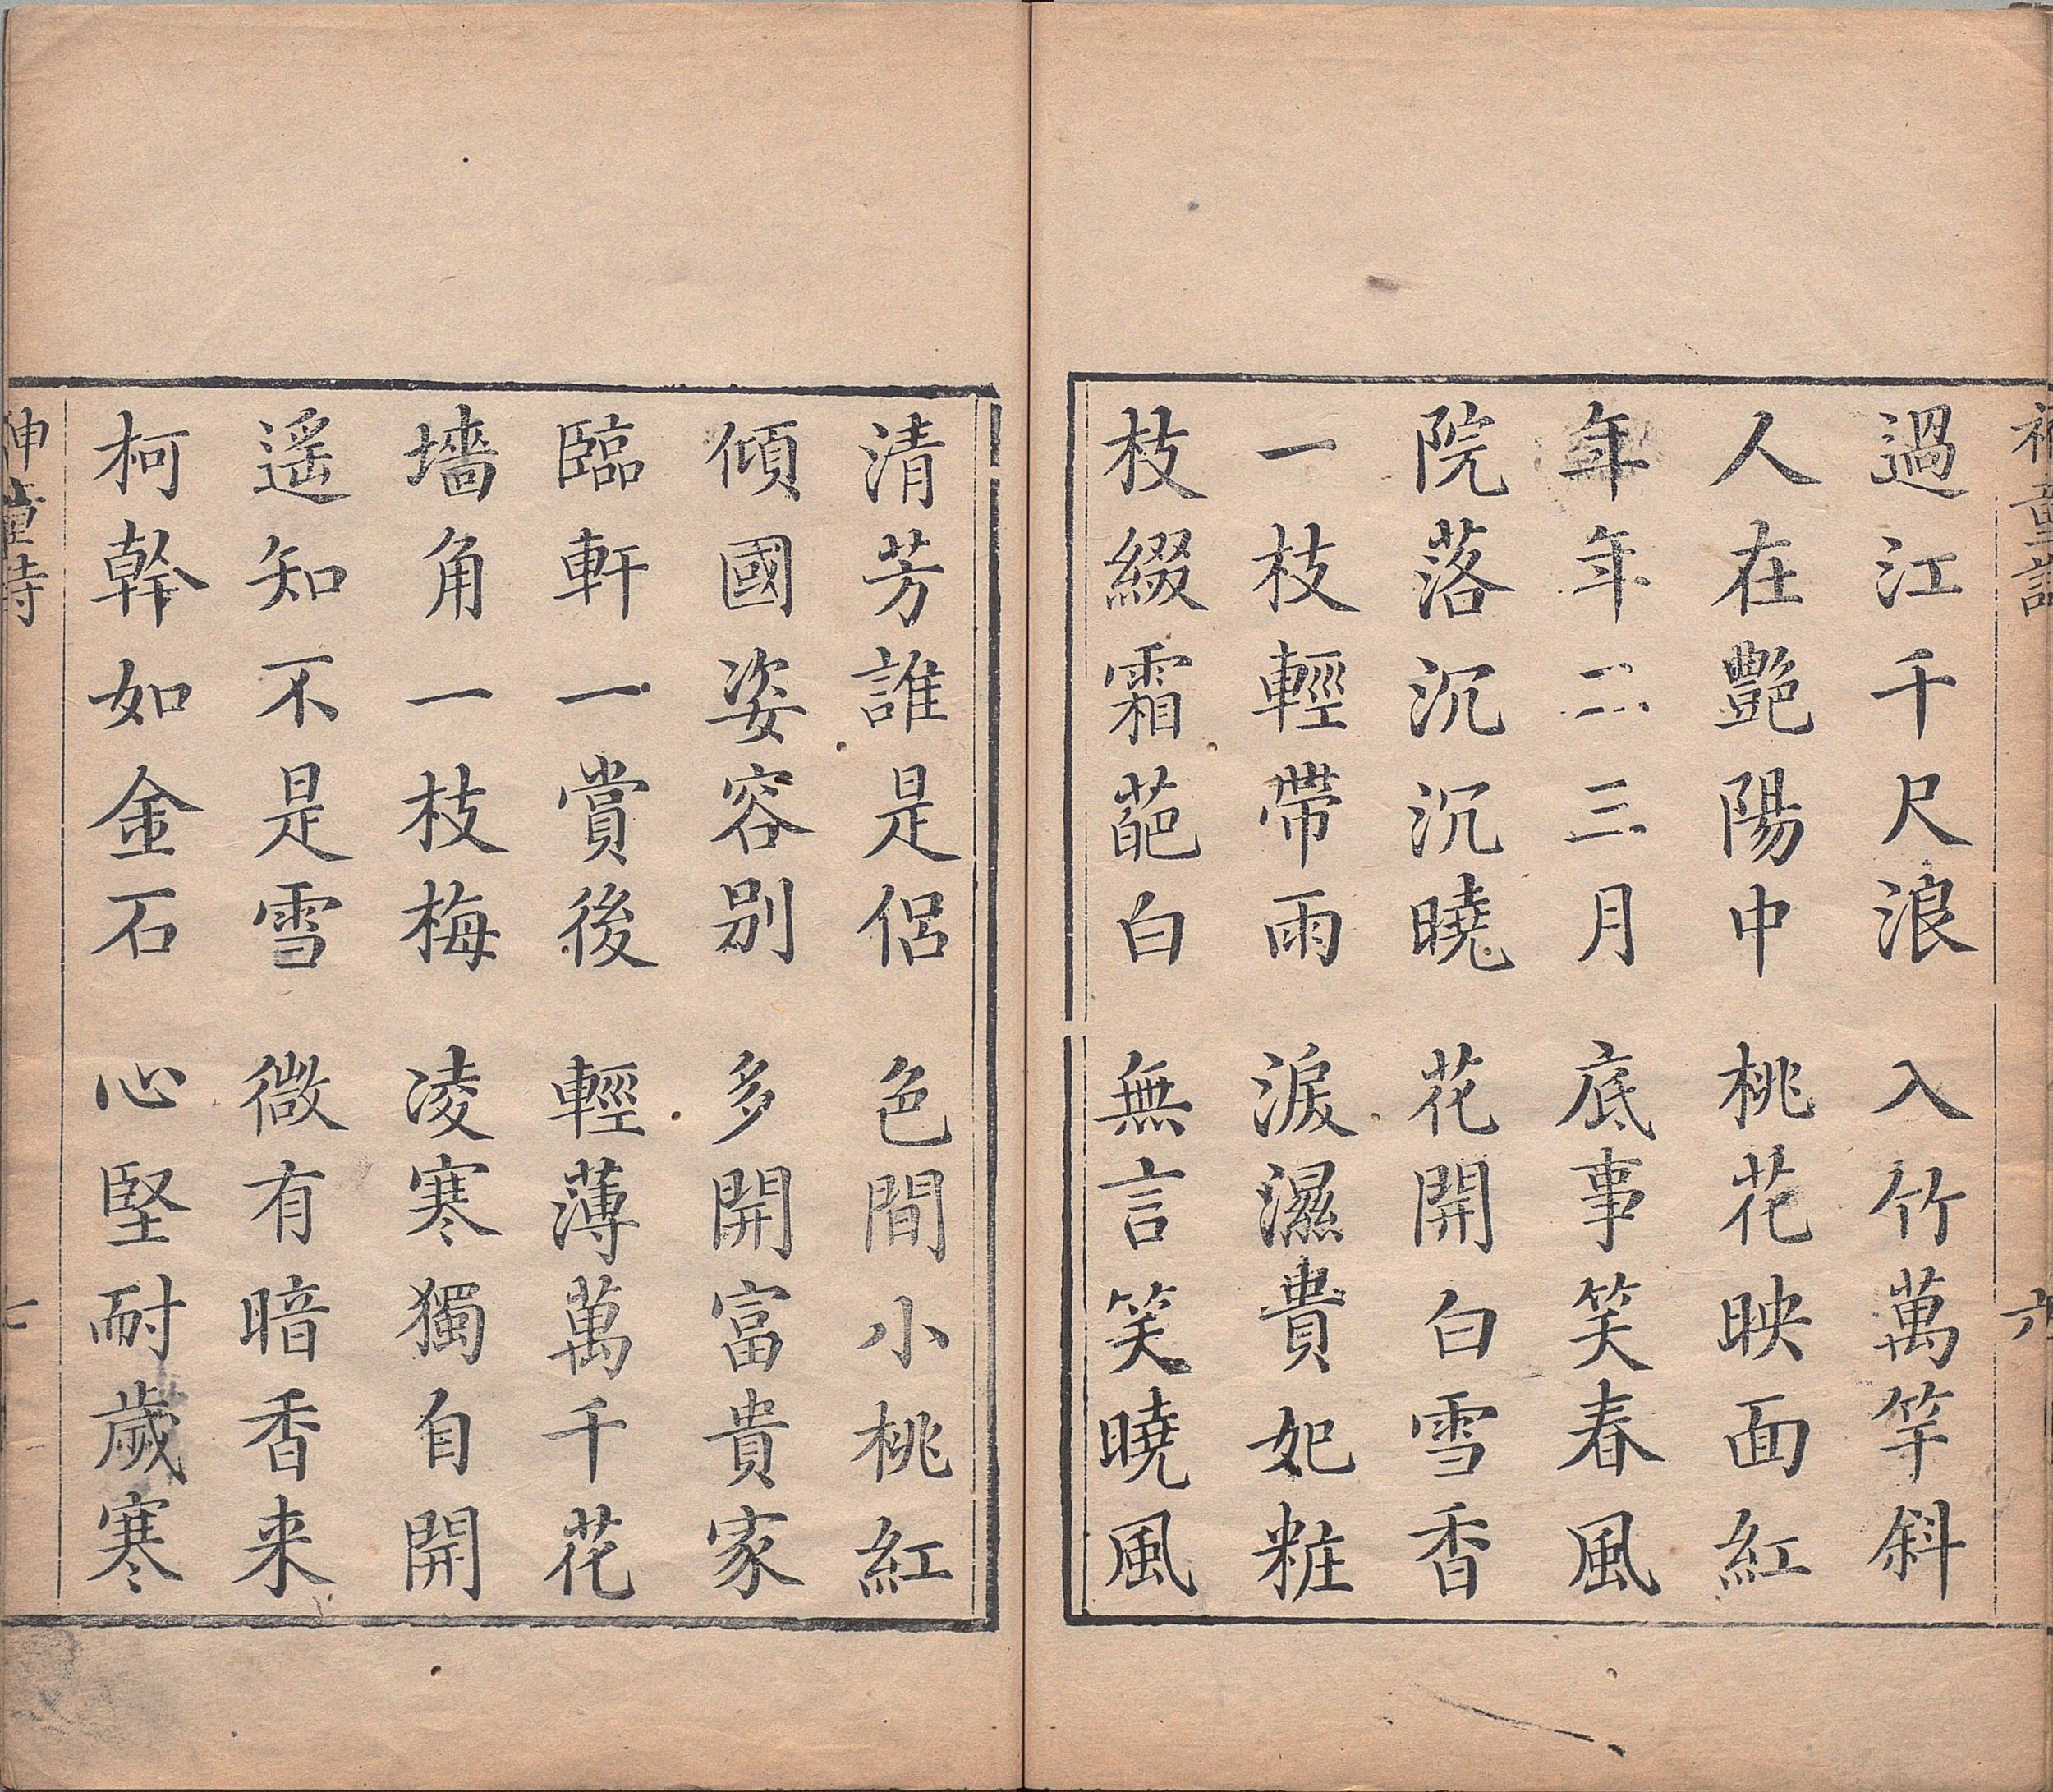 神童詩
六
過江千尺浪 入竹萬竿斜
人在艷陽中 桃花映面紅
年年二三月 底事笑春風
院落沉沉曉 花開白雪香
一枝輕帶雨 淚濕貴妃粧
枝綴霜葩白 無言笑曉風
清芳誰是侶 色間小桃紅
傾國姿容别 多開富貴家
臨軒一賞後 輕薄萬千花
墻角一枝梅 凌寒獨自開
遥知不是雪 微有暗香来
柯幹如金石 心堅耐歲寒
神童詩
七